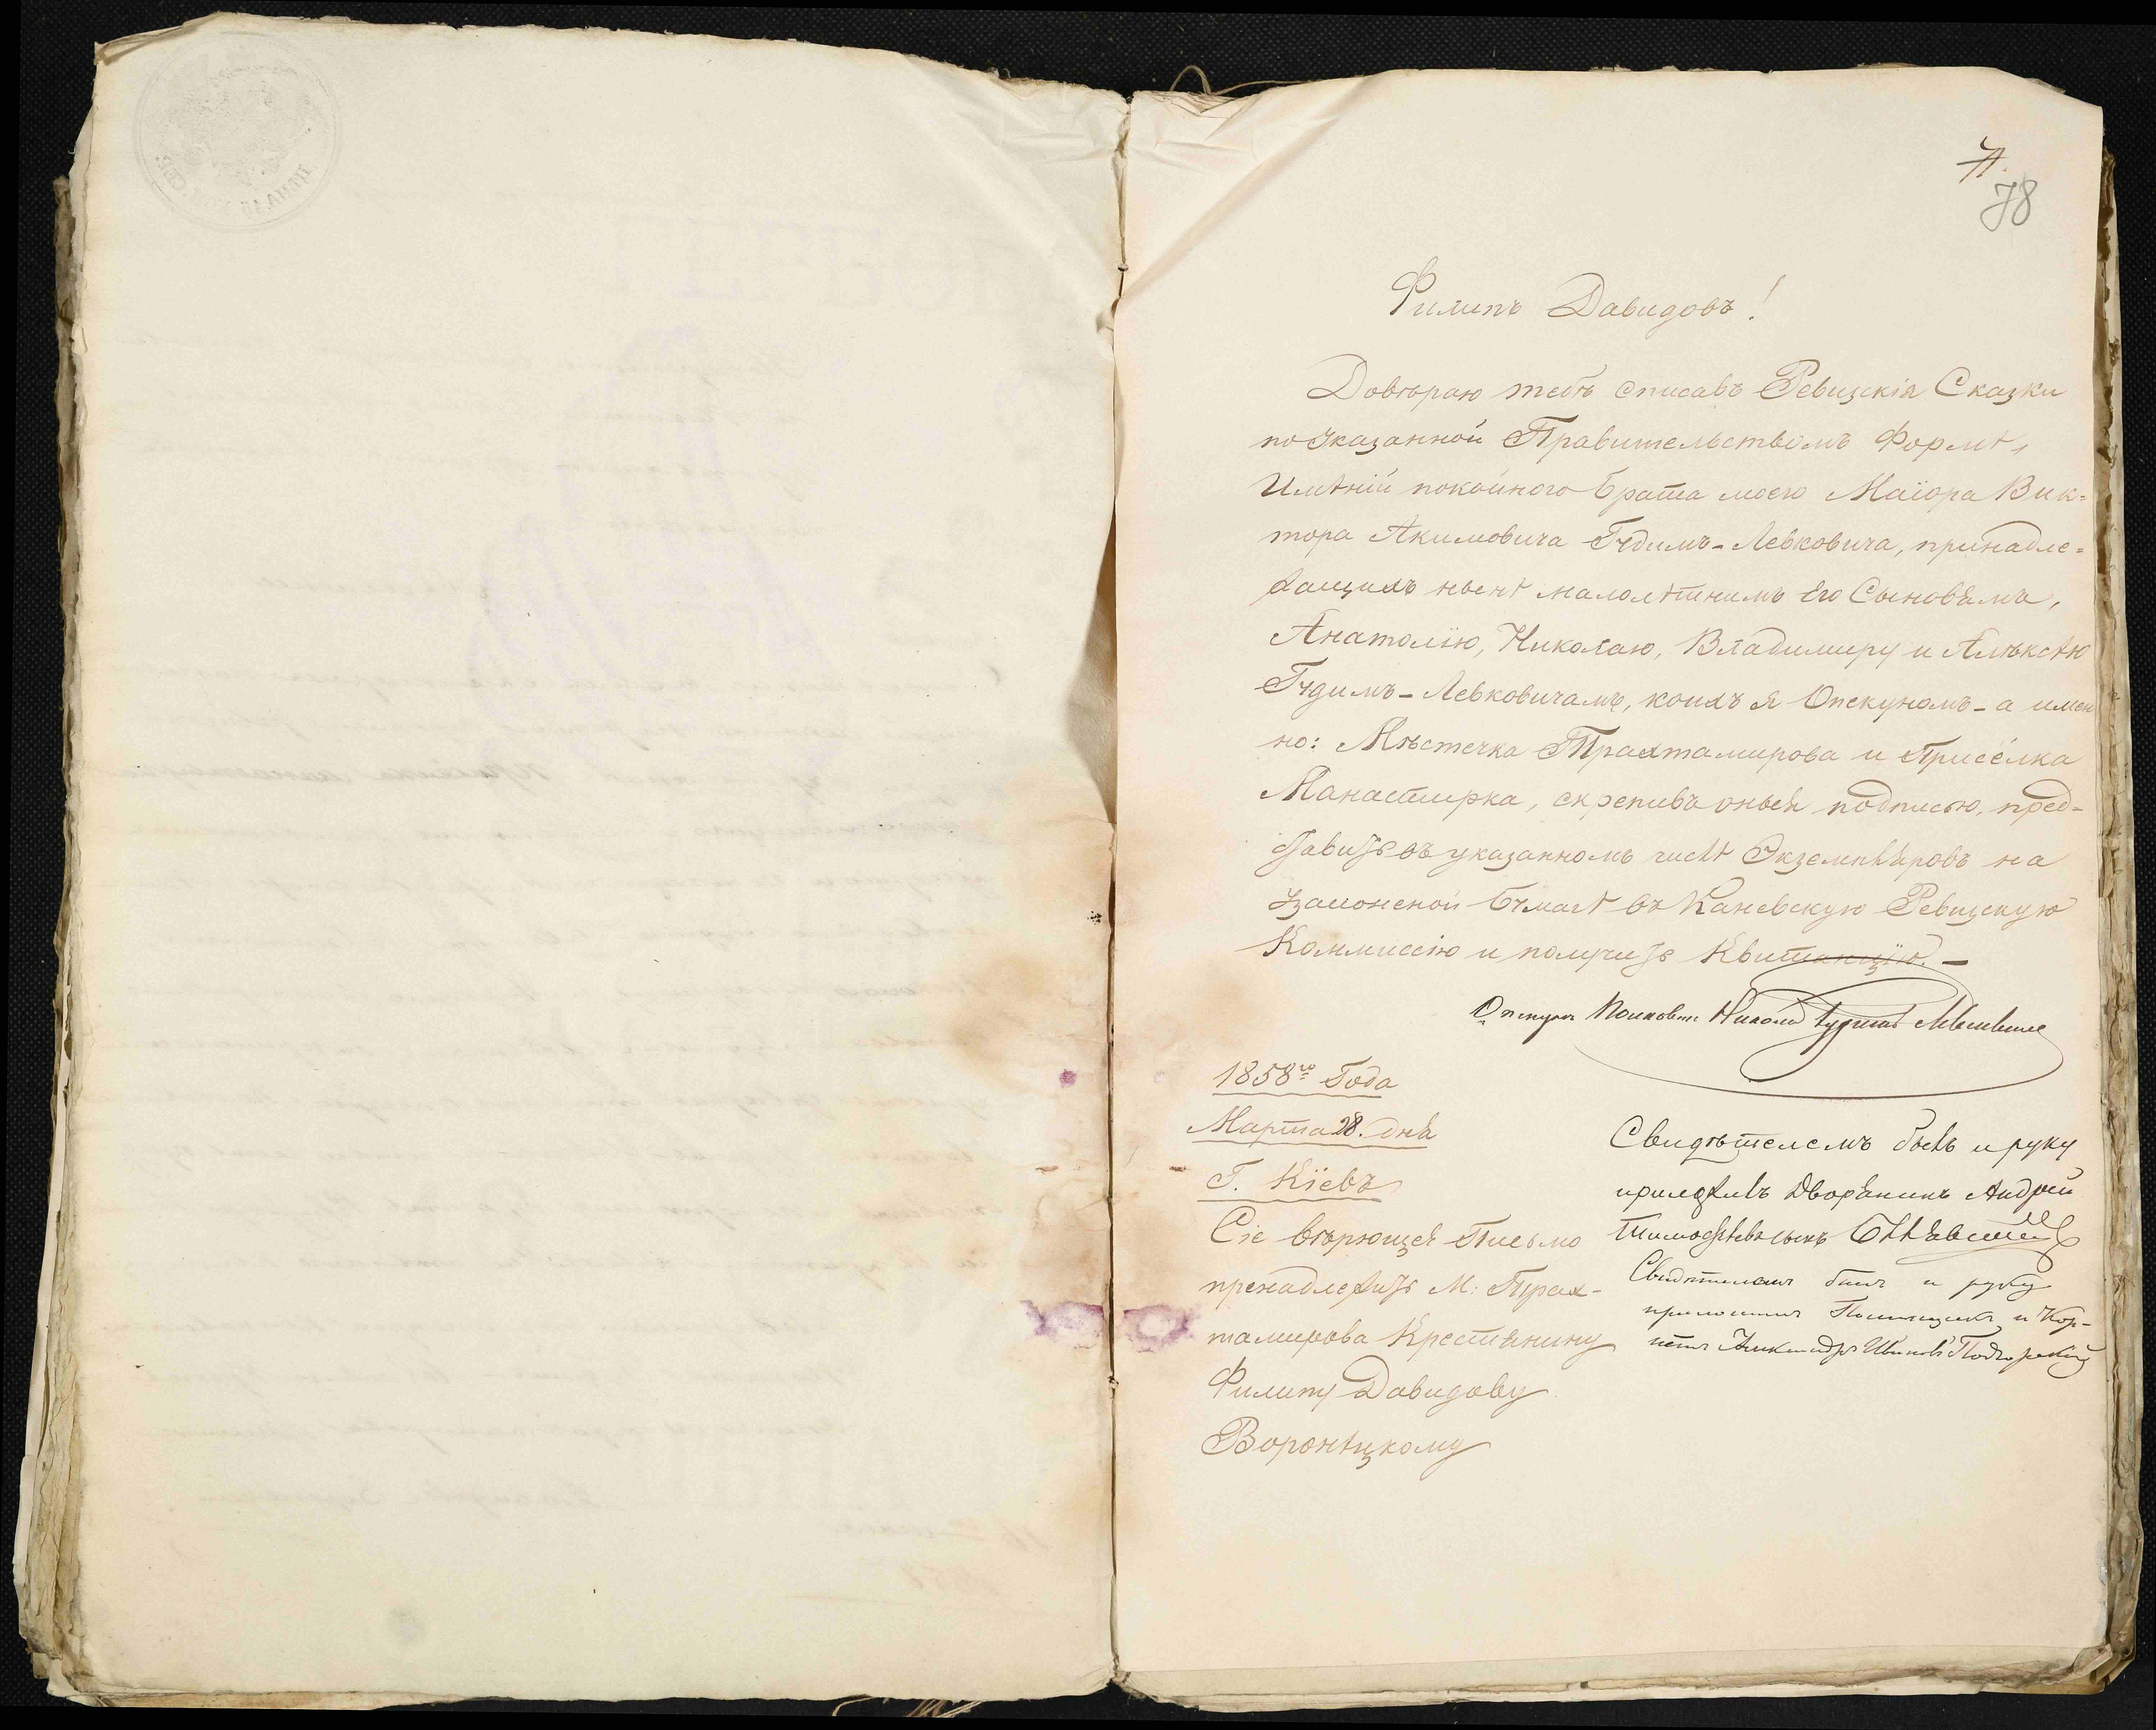 71.
78
Филипъ Давидовъ!
Довѣраю тебѣ списавъ Ревизскія Сказки
по Указанной Правительствомъ Формѣ,
Имѣній покойного брата моего Маіора Вик-
тора Акимовича Гудимъ-Левковича, принадле-
жащихъ нынѣ малолѣтнимъ Его Сыновямъ,
Анатолію, Николаю, Владимиру и Алѣксѣю
Гудимъ-Левковичамъ, коихъ я Опекуномъ - а имен
но: Мѣстечка Трахтамирова и Присёлка
Манастирка, скрепивъ оныя подписью, пред-
ставить въ указанномъ числѣ Экземпляровъ на
Узаконеной бумагѣ въ Каневскую Ревизскую
Коммиссію и получить Квитанцію. -
Опекунъ Полковникъ Николай Гудимъ Левковичь
1858го Года
Марта 28. дня
Г. Кіевъ
Сіе вѣрющея Письмо
пренадлежить М: Трах-
тамирова Крестянину
Филипу Давидову
Воронѣцкому
Свидѣтелемъ былъ и руку
приложилъ Дворянинъ Андрей
Тимофѣевъ сынъ
Свидѣтелемъ былъ и руку
приложилъ Помѣщикъ и Кор-
нетъ Александръ Ивановъ Подгорскій